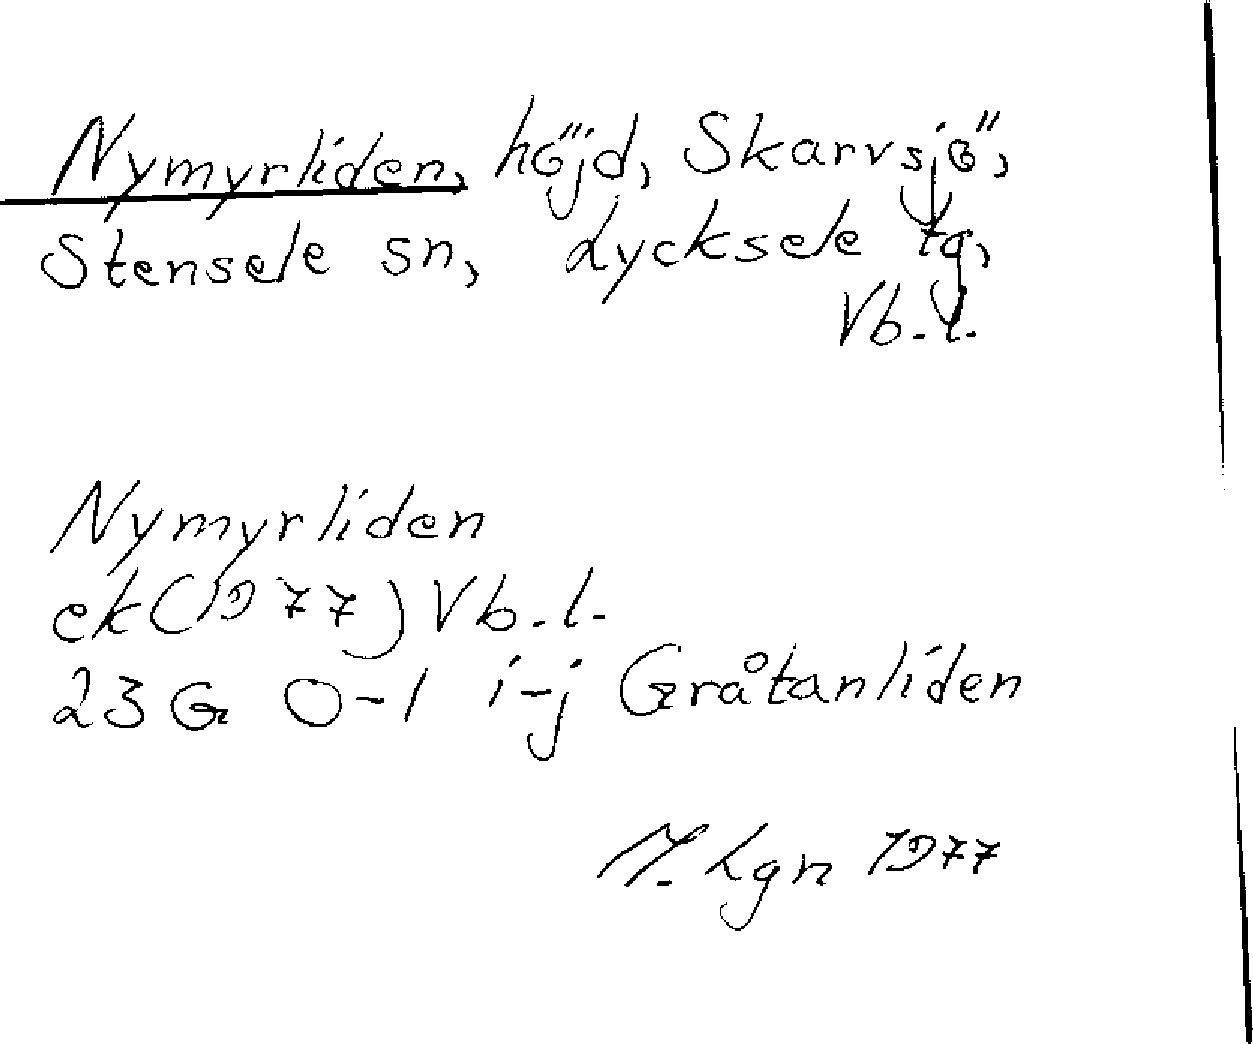 Nymyrliden, höjd, Skarvsjö,
Stensele sn, Lycksele tg,
Vb.l.
Nymyrliden
ek(1977)Vb.l.
23G 0-1 i-j Gråtanliden
Lgn 1977